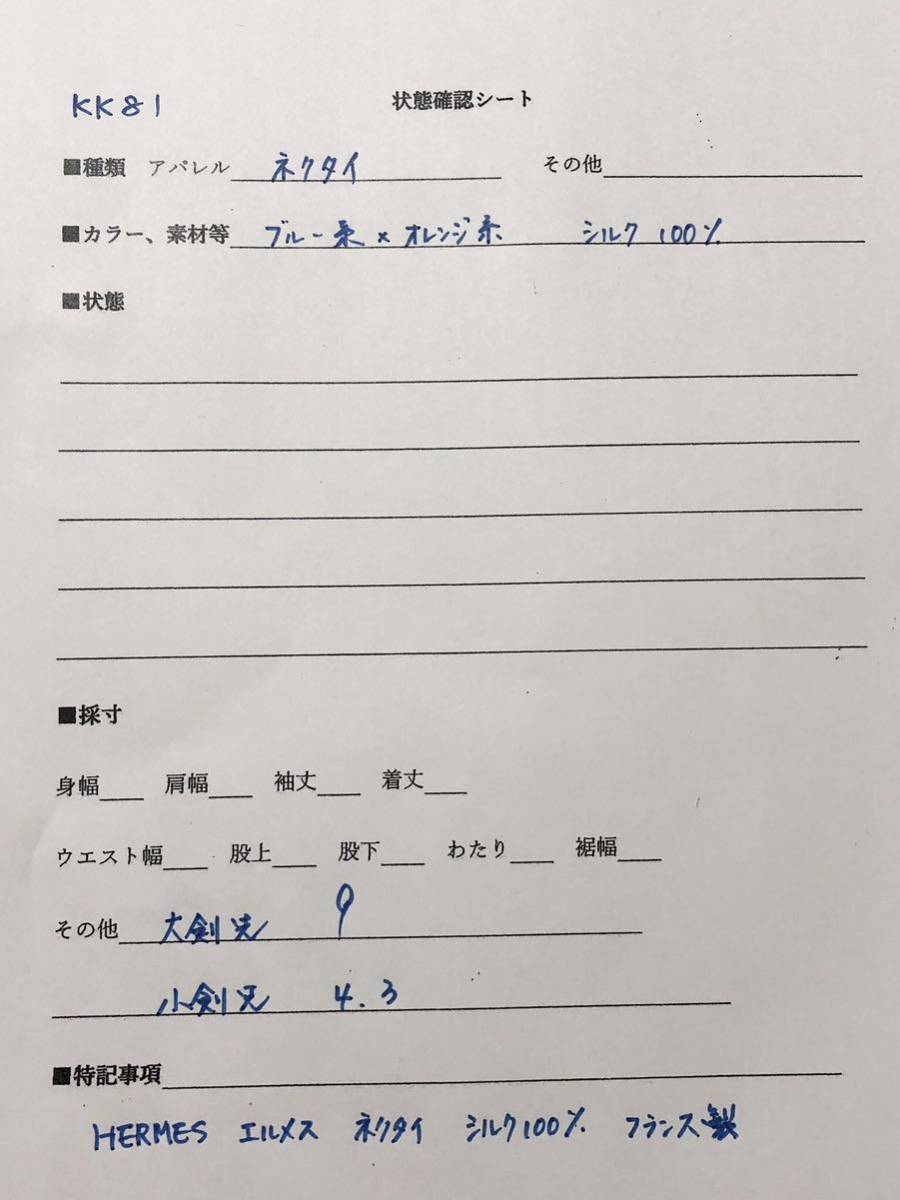 KK81 状態確認シート
■種類 アパレル ネクタイ その他
■カラー、素材等 ブルー系×オレンジ系 シルク100%
■状態
■採寸
身幅 肩幅 袖丈 着丈
ウエスト幅 股上 股下 わたり 裾幅
その他 大剣先 9
小剣先 4.3
■特記事項
HERMES エルメス ネクタイ シルク100% フランス製